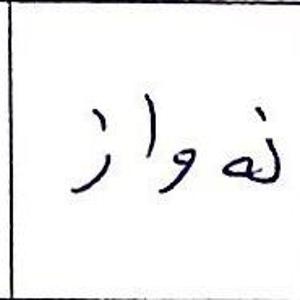 نەواز